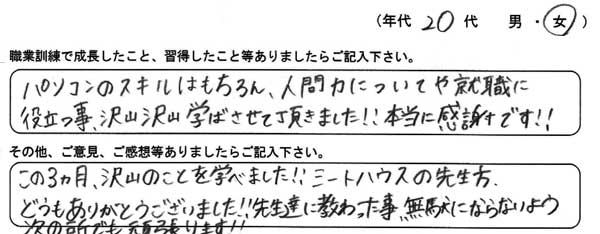 (年代 20 代 男 ・ 女)
職業訓練で成長したこと、習得したこと等ありましたらご記入下さい。
パソコンのスキルはもちろん、人間力についてや就職に
役立つ事、沢山沢山学ばさせて頂きました!!本当に感謝です!!
その他、ご意見、ご感想等ありましたらご記入下さい。
この3ヵ月、沢山のことを学べました!!ミートハウスの先生方、
どうもありがとうございました!!先生達に教わった事、無駄にならないよう
次の所でも頑張ります!!